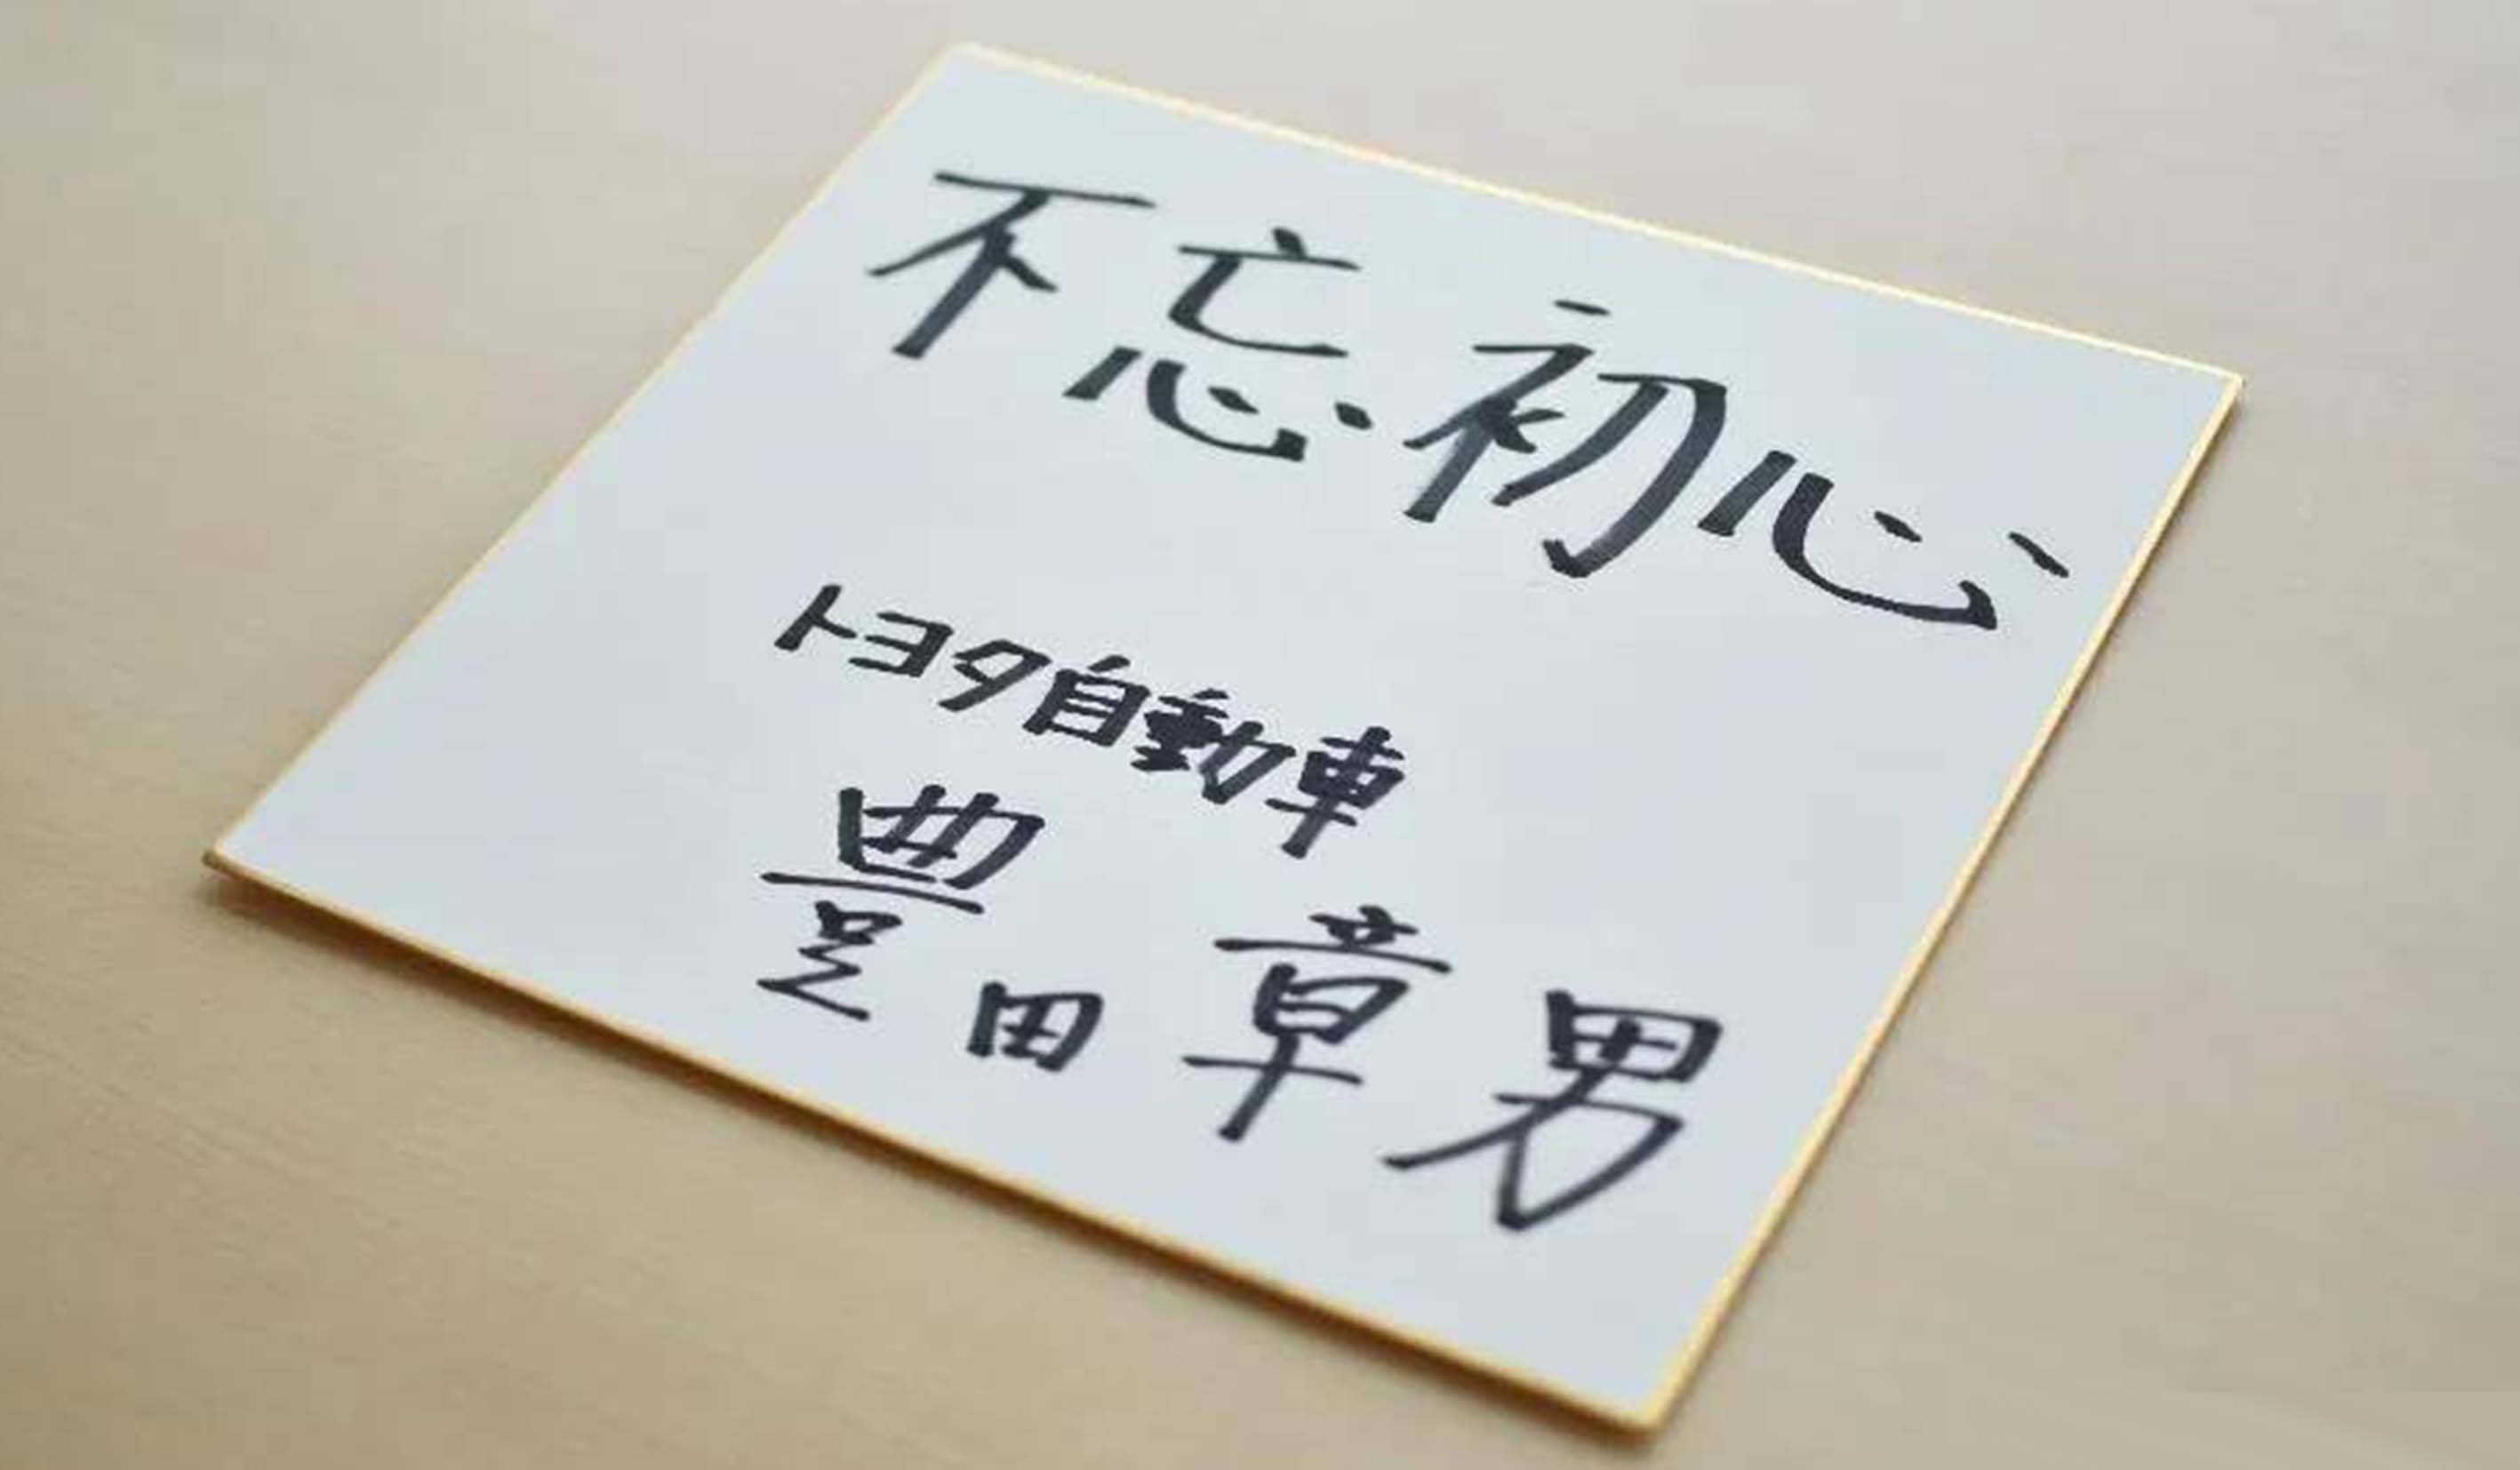 不忘初心
トヨタ自動車
豊田 章男